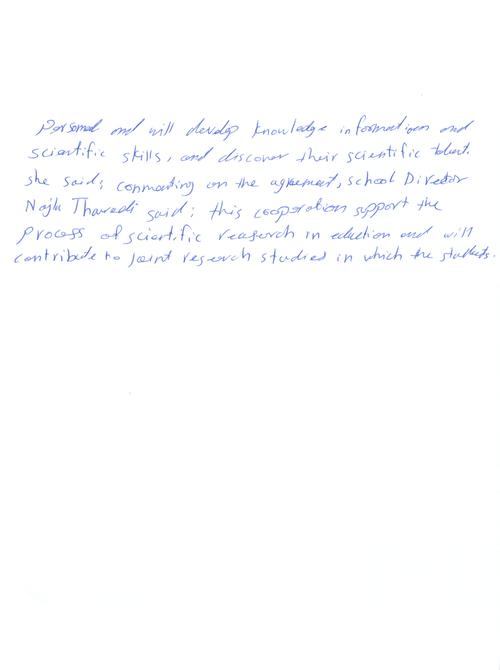 Personal and will develop knowledge information and
scientific skills, and discover their scientific talent.
she said; commenting on the agreement, school Director
Najla Thawadi said; this cooperation support the
process of scientific reaserch in eduction and will
contribute to joint reserch studied in which the students.